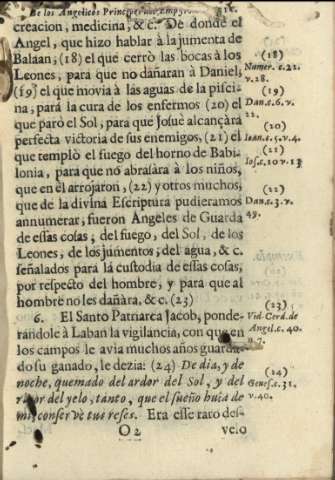 De los Angelicos Principes del Empyr.
creacion, medicina, & c. De donde el
Angel, que hizo hablar à la jumenta de
Balaan, (18) el que cerrò las bocas à los
Leones, para que no dañaran à Daniel,
(19) el que movia à las aguas de la pisci-
na, para la cura de los enfermos (20) el
que parò el Sol, para que Josuè alcançàra
perfecta victoria de sus enemigos, (21) el
que templò el fuego del horno de Babi-
lonia, para que no abrasàra à los niños,
que en el arrojaron, (22) y otros muchos,
que de la divina Escriptura pudieramos
annumerar, fueron Angeles de Guarda
de essas cosas, del fuego, del Sol, de los
Leones, de los jumentos, del agua, & c.
señalados para la custodia de essas cosas,
por respecto del hombre, y para que al
hombre no les dañàra, & c. (23)
6. El Santo Patriarca Jacob, ponde-
randole à Laban la vigilancia, con que en
los campos le avia muchos años guarda-
do su ganado, le dezia: (24) De dia, y de
noche, quemado del ardor del Sol, y del
del yelo, tanto, que el sueño huia de
mi, conservè tus reses. Era esse raro des-
O 2
velo
(18)
Numer. c. 22.
v. 28.
(19)
Dan. c. 6. v.
22.
(20)
Ioan. c. 5. v. 4.
(21)
Ios. c. 10 v. 13
(22)
Dan. c. 3. v.
49.
(23)
Vid. Cerd. de
Angel. c. 40.
n. 7.
(24)
Genes. c. 31.
v. 40.